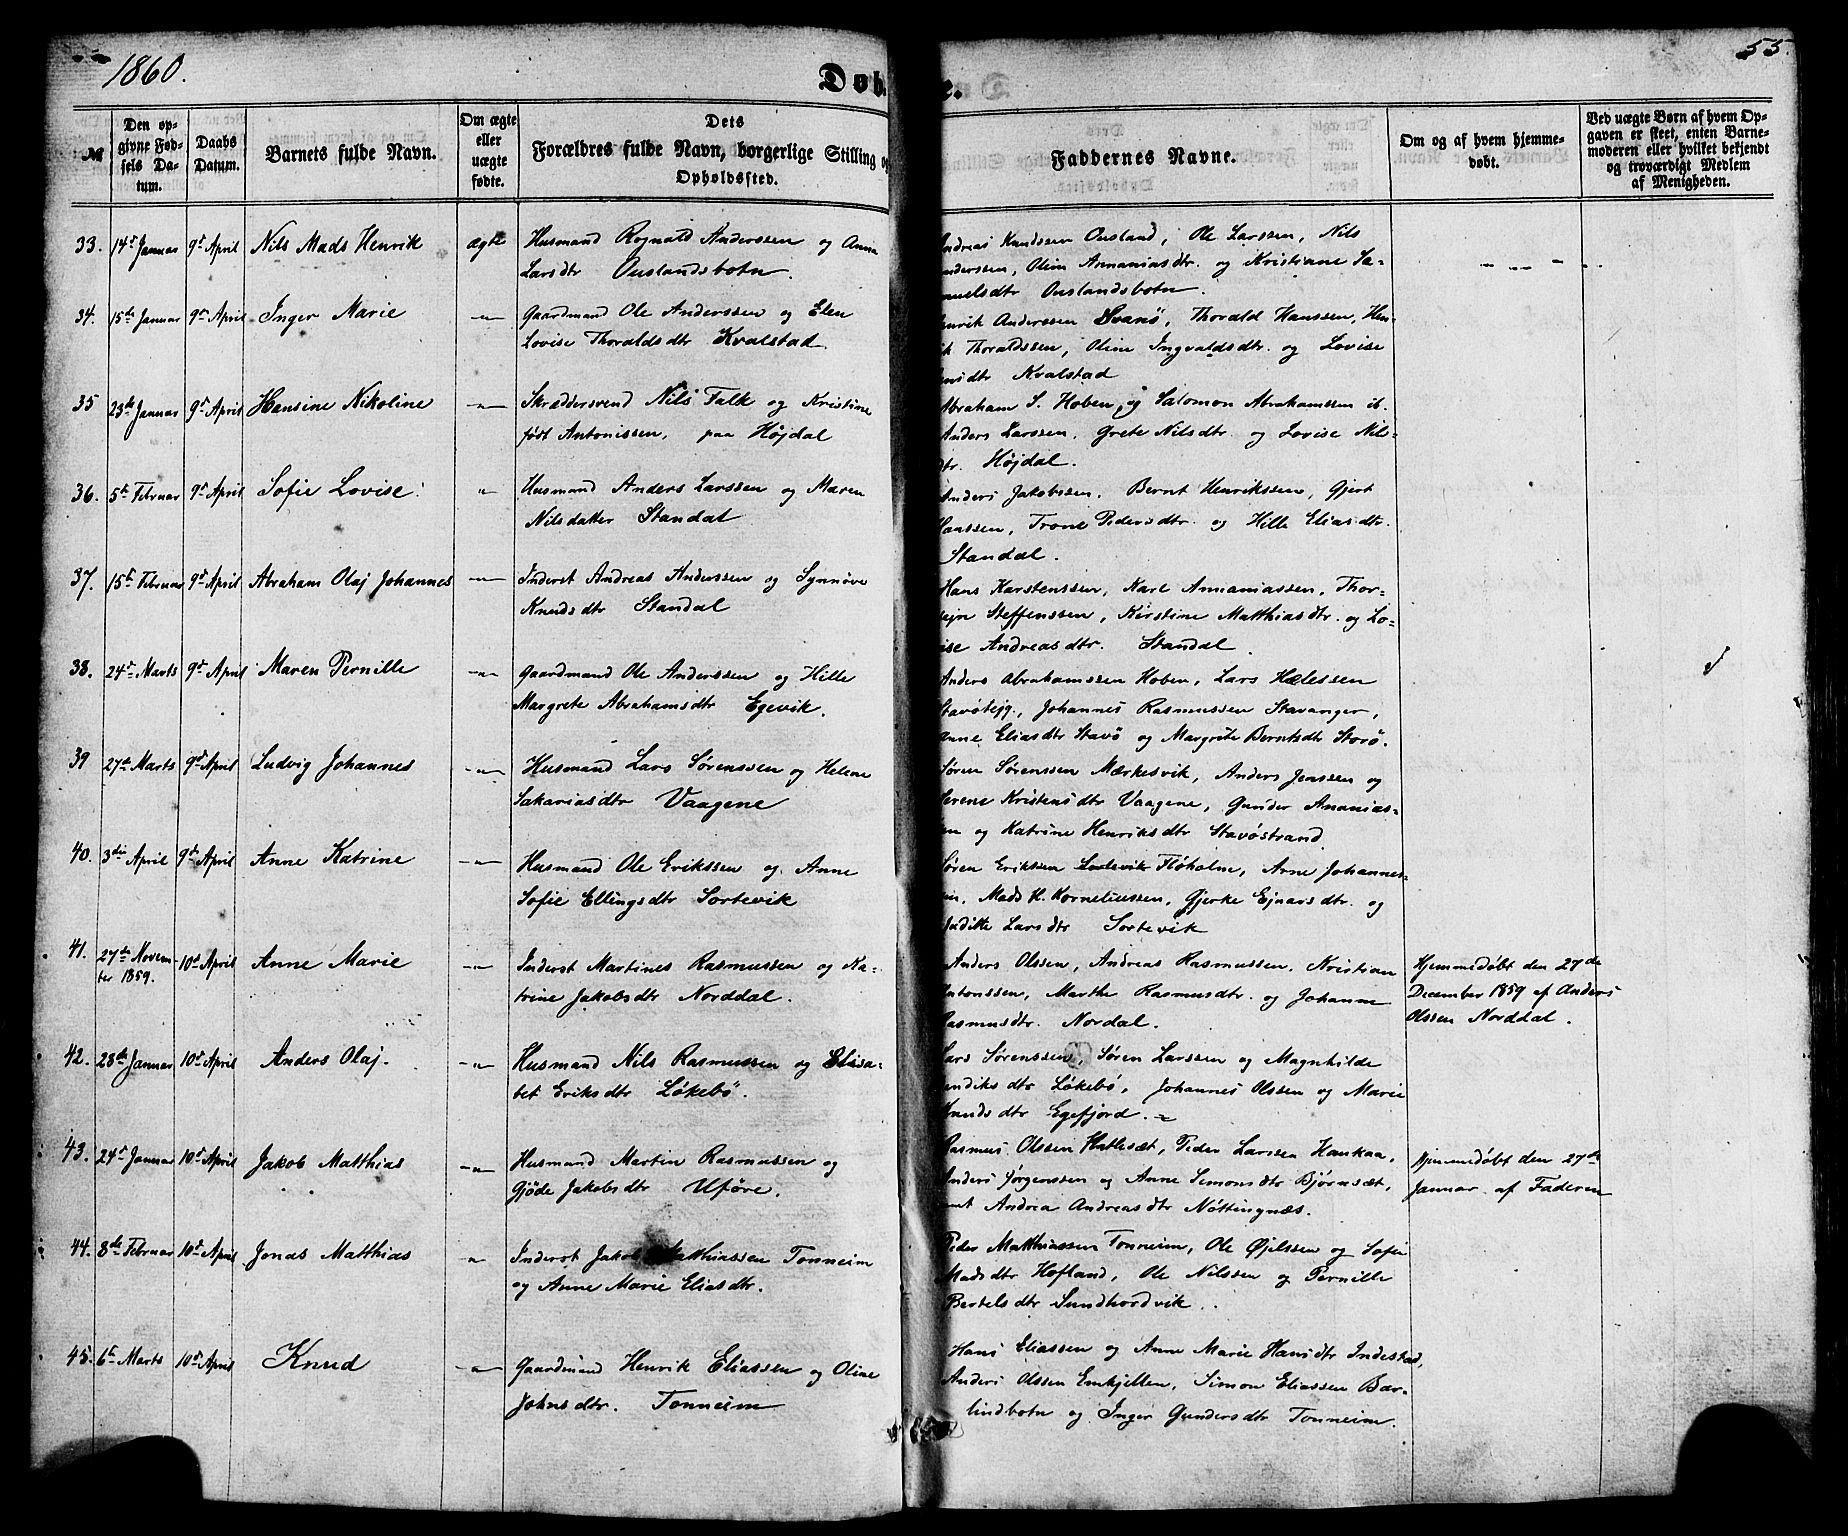 1860.
Døb
e.
55.
№
Den opgivne Fødsels Datum.
Daabs Datum.
Barnets fulde Navn.
Om ægte eller uægte fødte.
Dets Forældres fulde Navn, borgerlige Stilling og Opholdssted.
Faddernes Navne.
Om og af hvem hjemmedøbt.
Ved uægte Børn af hvem Opgaven er skeet, enten Barnemoderen eller hvilket bekjendt og troværdigt Medlem af Menigheden.
33. 14de Januar 9de April Nils Mads Henrik ægte Husmand Rognald Anderssen og Anna
Larsdtr Ouslandsbotn.
Andreas Knudssen Ousland, Ole Larssen, Nils
Anderssen, Olin Annaniasdtr. og Kristiane Sa=
muelsdtr Ouslandsbotn.
34. 15de Januar 9de April Inger Marie -"- Gaardmand Ole Anderssen og Elen
Lovise Thoraldsdtr Kvalstad.
Henrik Anderssen Svanö, Thorald Hanssen, Hen=
rik Thoraldssen, Oline Ingvaldsdtr. og Lovise
Kvalstad
35 23de Januar 9de April Hansine Nikoline -"- Skræddersvend Nils Falk og Kristine
født Antonissen, paa Höjdal
Abraham S. Hoben, og Salomon Abrahamssen ib.
Anders Larssen, Grete Nilsdtr. og Lovise Nils=
dtr. Höjdal.
36. 5te Februar 9de April Sofie Lovise. " Husmand Anders Larssen og Maren
Nilsdatter Standal
Anders Jakobssen, Bernt Henrikssen, Gjert
Hanssen, Trone Pedersdtr. og Hille Eliasdtr.
Standal.
37. 15de Februar 9de April Abraham Olaj Johannes -"- Inderst Andreas Anderssen og Synnöve
Knudsdtr Standal
Hans Karstenssen, Karl Annaniassen, Thor=
stejn Steffenssen, Kirstine Matthiasdtr. og Lo=
vise Andreasdtr. Standal.
38. 24de Marts 9de April Maren Pernille -"- Gaardmand Ole Anderssen og Hille
Margrete Abrahamsdtr Egevik.
Anders Abrahamssen Hoben, Lars
Johannes Rasmussen Stavanger,
Anne Eliasdtr Stavö og Margrete Berntsdtr Storö.
39 27de Marts 9de April Ludvig Johannes -"- Husmand Lars Sörenssen og Helene
Sakariasdtr Vaagene
Sören Sörenssen Mærkesvik, Anders Jenssen og
Serene Kristensdtr Vaagene, Gunder Ananias=
sen og Katrine Henriksdtr Stavöstrand.
40. 3die April 9de April Anne Katrine -"- Husmand Ole Erikssen og Anne
Sofie Ellingsdtr Sortevik
Sören Erikssen Sortevik Flöholm, Arne Johannes=
sen, Mads K. Korneliussen, Gjerke Ejnarsdtr. og
Larsdtr Sortevik
41. 27de Novem=
ber 1859. 10de April Anne Marie -"- Inderst Martines Rasmussen og Ka=
trine Jakobsdtr Norddal.
Anders Olssen, Andreas Rasmussen, Kristian
Antonssen, Marthe Rasmusdtr. og Johanne
Rasmusdtr. Nordal.
Hjemmedöbt den 27de
December 1859 af Anders
Olssen Norddal.
42. 28de Januar 10de April Anders Olaj. -"- Husmand Nils Rasmussen og Elisa=
bet Eriksdtr Lökebö.
Lars Sörenssen, Sören Larssen og Magnhilde
Lökebö, Johannes Olssen og Marie
Knudsdtr Egefjord.
43. 24de Januar 10de April Jakob Matthias -"- Husmand Martin Rasmussen og
Gjöde Jakobsdtr Uföre.
Rasmus Olssen Hatlesæt, Peder Larssen Haukaa,
Anders Jörgenssen og Anne Simonsdtr Björnsæt,
samt Andrea Andreasdtr Nöttingnæs.
Hjemmedöbt den 27de
Januar af Faderen
44. 8de Februar 10de April Jonas Matthias " Inderst Jakob Matthiassen Tonneim
og Anne Marie Eliasdtr.
Peder Matthiassen Tonneim, Ole Øjelssen og Sofie
Madsdtr Hofland, Ole Nilssen og Pernille
Bertelsdtr Sundhordvik.
45. 6te Marts 10de April Knud -"- Gaardmand Henrik Eliassen og Oline
Johnsdtr. Tonneim
Hans Eliassen og Anne Marie Hansdtr Indestad,
Anders Olssen Emhjellen, Simon Eliassen Bar=
lindbotn og Inger Gundersdtr Tonneim.